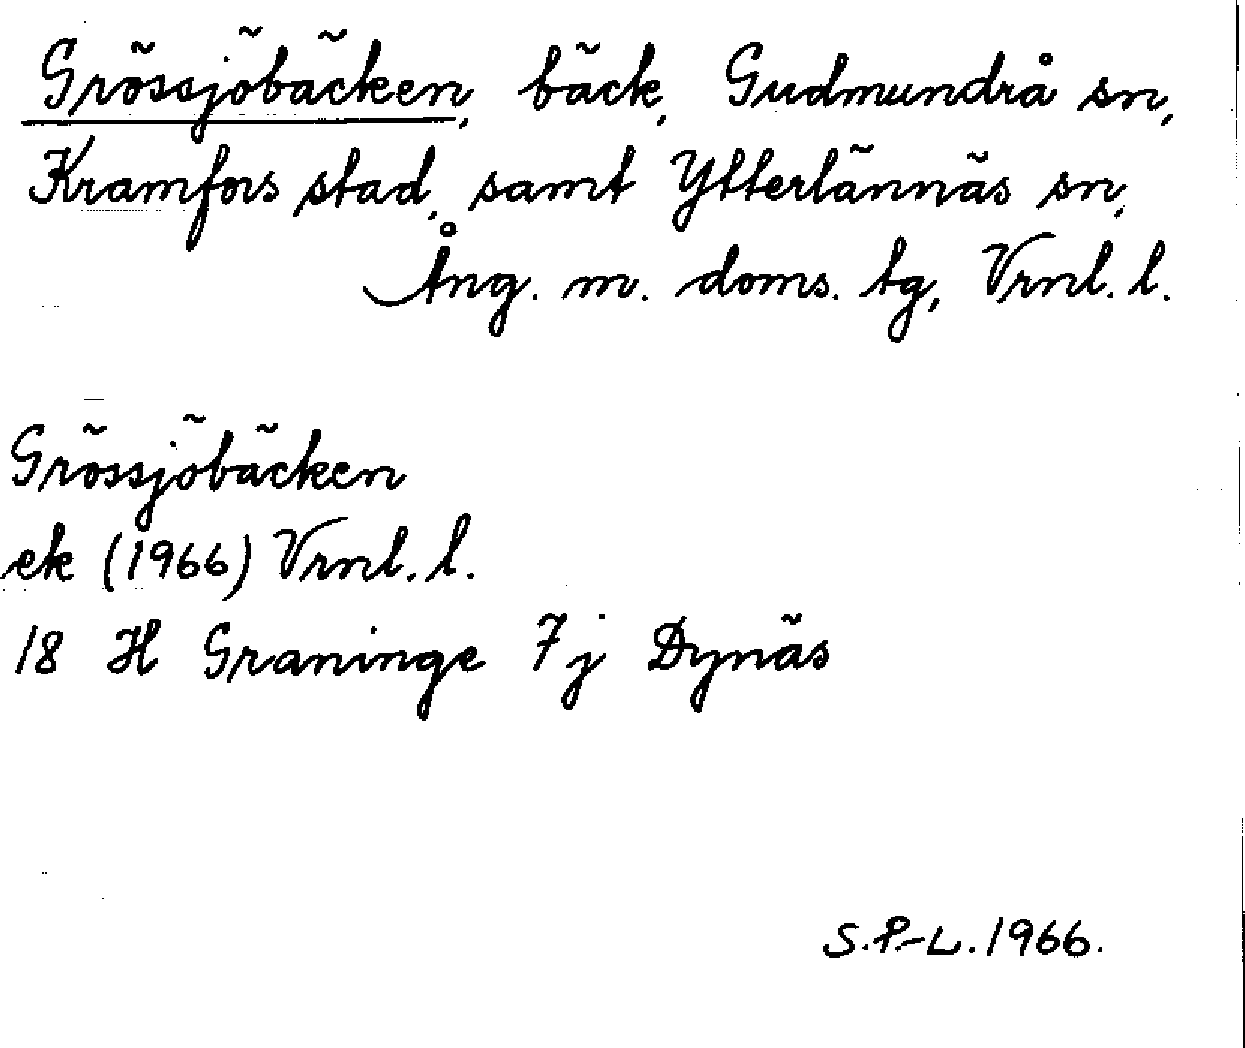 Grössjöbäcken, bäck, Gudmundrå sn,
Kramfors stad, samt Ytterlännäs sn,
Ång. m. doms. tg, Vrnl. l.
Grössjöbäcken
ek (1966) Vrnl. l.
18 H Graninge 7j Dynäs
S.P-L. 1966.